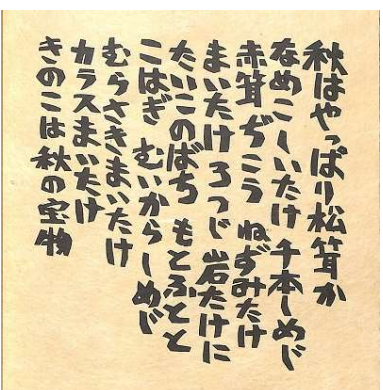 秋はやっぱり松茸か
なめこしいたけ 千本しめじ
赤茸 ぢこう ねずみたけ
まいたけ ろうじ 岩たけに
たいこのばち もとふとと
こはぎ むいからしめじ
むらさきまいたけ
カラスまいたけ
きのこは秋の宝物